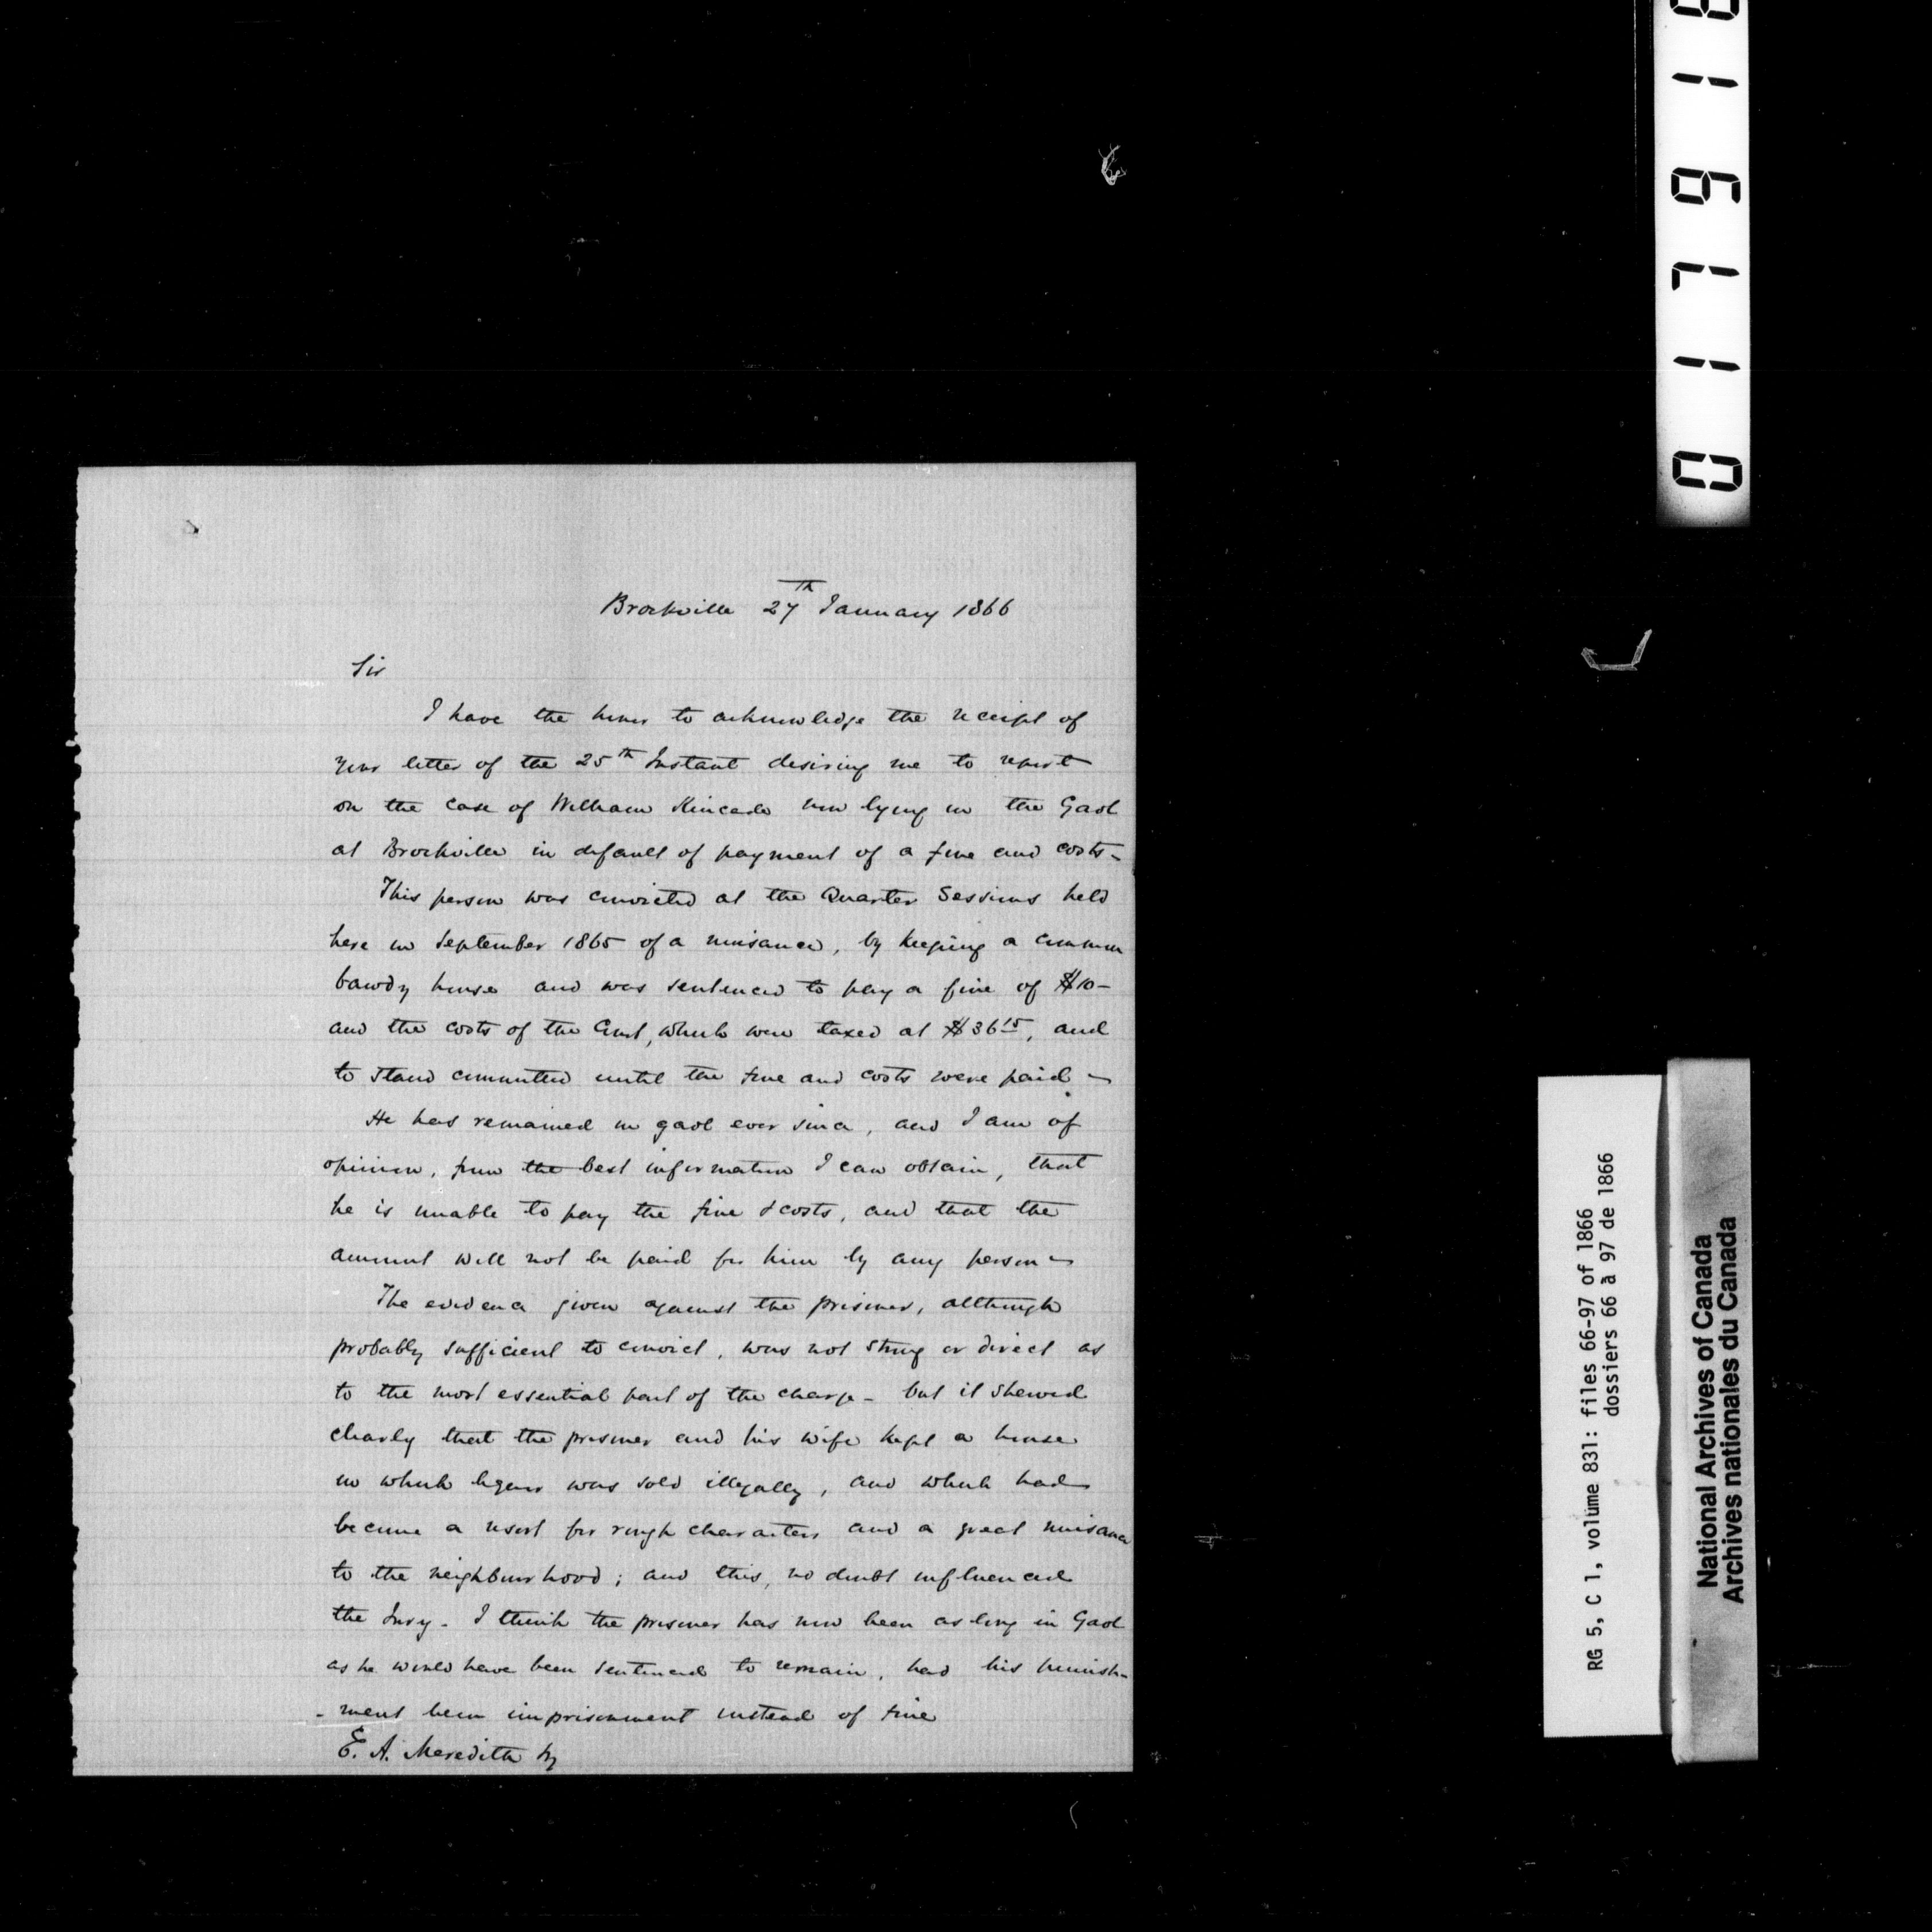 Brockville 27th January 1866
Sir
I have the honor to acknowledge the receipt of
your letter of the 25th Instant desiring me to report
on the case of William Kincade now lying in the Gaol
at Brockville in default of payment of a fine and costs-
This person was convicted at the Quarter Sessions held
here in September 1865 of a nuisance, by keeping a common
bawdy house and was sentenced to pay a fine of $10-
and the costs of the Court, which were taxed at $36 15, and
to stand committed until the fine and costs were paid -
He has remained in gaol ever since, and I am of
opinion, from the best information I can obtain, that
he is unable to pay the fine & costs, and that the
amount will not be paid for him by any person -
The evidence given against the prisoner, although
probably sufficient to convict, was not strong or direct as
to the most essential part of the charge - but it shewed
clearly that the prisoner and his wife kept a house
in which liquor was sold illegally, and which had
become a resort for rough characters and a great nuisance
to the neighbourhood; and this, no doubt influenced
the Jury. I think the prisoner has now been as long in Gaol
as he would have been sentenced to remain, had his punish-
-ment been imprisonment instead of fine
E. A. Meredith
RG 5, C 1, volume 831: files 66-97 of 1866
dossiers 66 à 97 de 1866
National Archives of Canada
Archives nationales du Canada
0 1 7 9 1 8